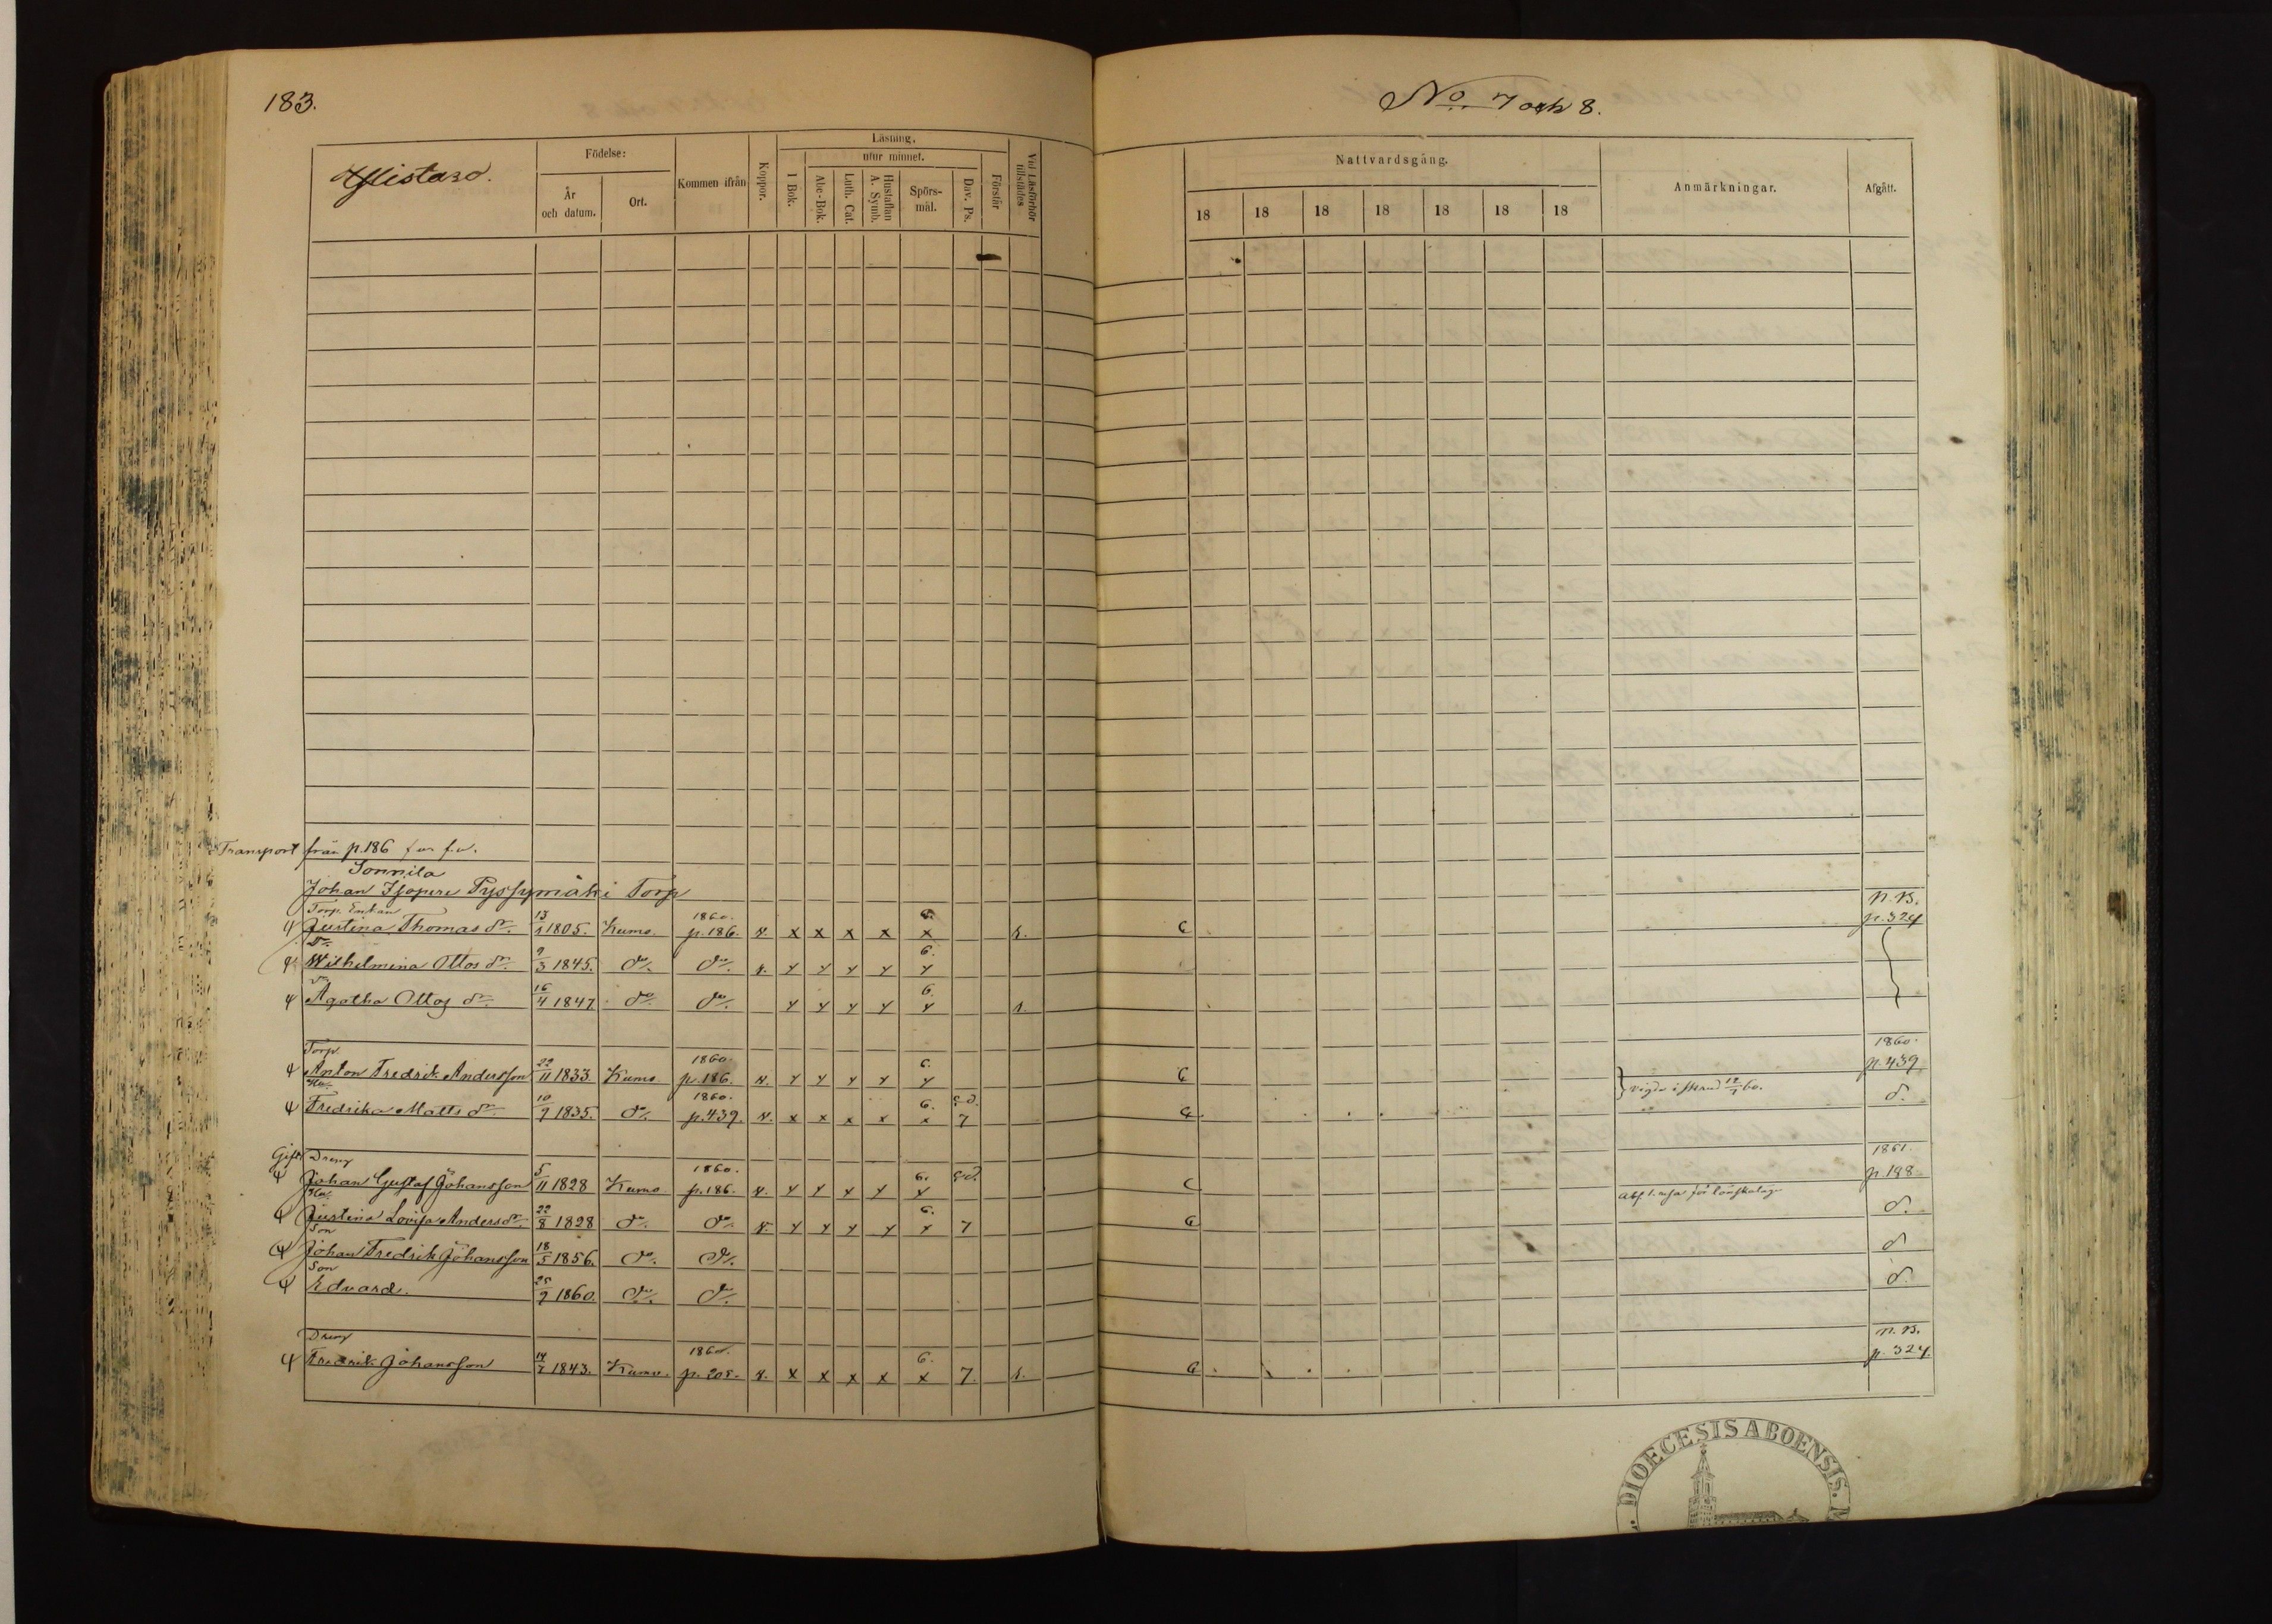 183.
No 7 och 8.
Ylistaro.
Födelse:
År och datum.
Ort.
Kommen ifrån
Koppor.
Läsning,
utur minnet.
I Bok.
Abc-Bok.
Luth. Cat.
Hustaflan A. Symb.
Spörsmål.
Dav. Ps.
Förstår
Vid Läsförhör tillstädes
Nattvardsgång.
18 18 18 18 18 18 18
Anmärkningar.
Afgått.
Transport från p. 186
Sonnila
Johan Isopere Pyssymäki Torp
N. B.
Torp. Enkan 13 1860. 6.
Justina Thomas dr. 1805. Kumo. p. 186. x. x x x x x 1. C p. 324
Dr. 9 6.
Wilhelmina Ottos dr. 3 1845. do. do. x. x x x x x
Dr. 16 6.
Agatha Ottos dr. 4 1847. do. do. x x x x x 1.
Torp. 22 1860. 6. 1860.
Anton Fredrik Andersson 11 1833. Kumo p. 186. x. x x x x x C p. 439
Hu. 10 1860. 6. vigde 60.
Fredrika Matts dr. 1835. do. p. 439. x. x x x x x 7 C d.
Gift Dreng 5 1860. 6. 1861.
Johan Gustaf Johansson 11 1828 Kumo p. 186. x. x x x x x C p. 188
Hu. 22 6.
Justina Lovisa Andersdr. 8 1828 do. do. x. x x x x x 7 C d.
Son 18
Johan Fredrik Johansson 5 1856. do. do. d
Son 25
Edvard. 1860. do. do. d.
Dreng 14 1860. 6. N. B.
Fredrik Johansson 7 1843. Kumo. p. 205. x. x x x x x 7. 1. C p. 324.
DIOECESIS ABOENSIS.